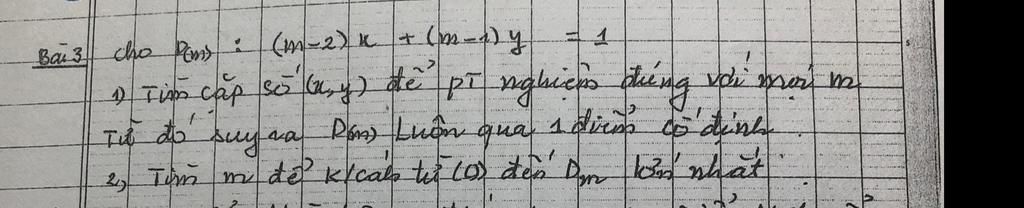 Bài 3 cho D(m) : (m-2) x + (m-1) y = 1
1) Tìm cặp số (x, y) để PT nghiệm đúng với mọi m
Từ đó suy ra D(m) Luôn qua 1 điểm cố định
2, Tìm m để k/cách từ (O) đến Dm lớn nhất